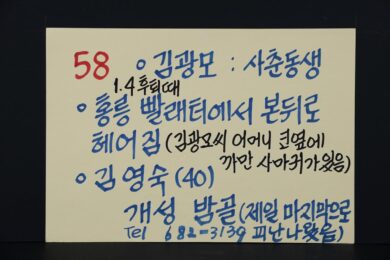 58 ㅇ김광모 : 사춘동생
1.4후퇴때
ㅇ홍릉 빨래터에서 본뒤로
헤어짐 (김광모씨 어머니 코옆에
까만 사마귀가 있음)
ㅇ김영숙(40)
개성 밤골 (제일 마지막으로
Tel 682-3139 피난나왔음)